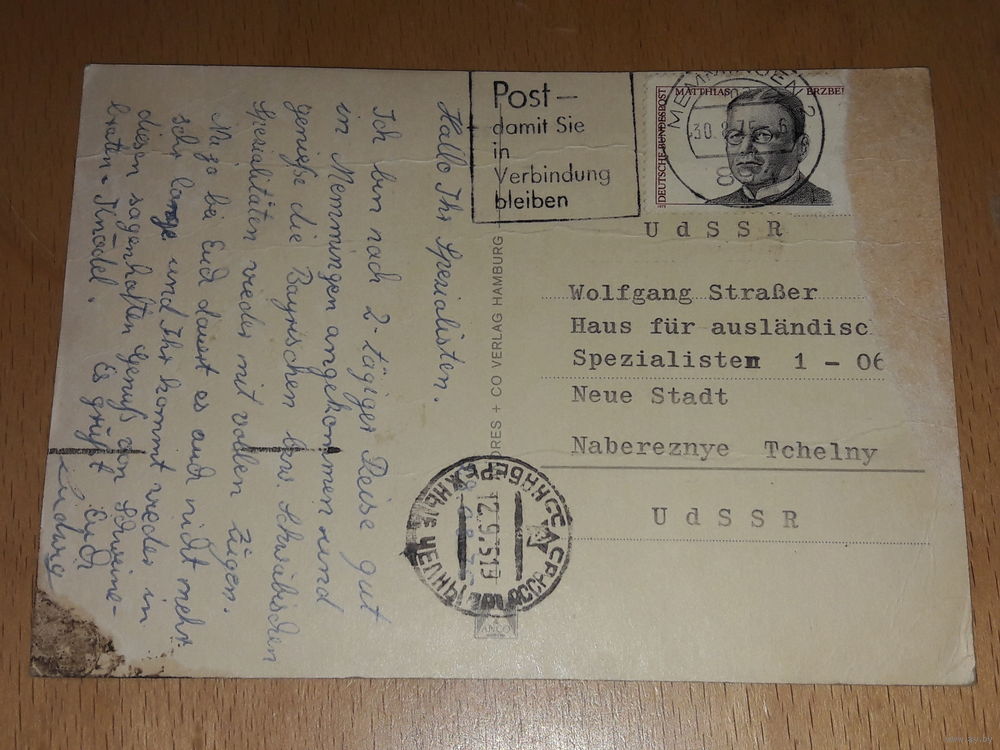 Hallo Ihr Spezialisten.
Ich bin nach 2-tägiger Reise gut
in Memmingen angekommen und
genieße die Bayrischen bzw. Schwäbischen
Spezialitäten wieder mit vollen Zügen.
Na ja bei Euch dauert es auch nicht mehr
sehr lange und Ihr kommt wieder in
diesen sagenhaften Genuß von Schweine-
braten + Knödel. Es grüßt Euch
Ludwig
Post –
damit Sie
in
Verbindung
bleiben
MEMMINGEN
30.8.75
DEUTSCHE BUNDESPOST
MATTHIAS ERZBE
UdSSR
Wolfgang Straßer
Haus für ausländisc
Spezialisten 1 - 06
Neue Stadt
Nabereznye Tchelny
UdSSR
CO VERLAG HAMBURG
СССР
12.9.75
ANCO